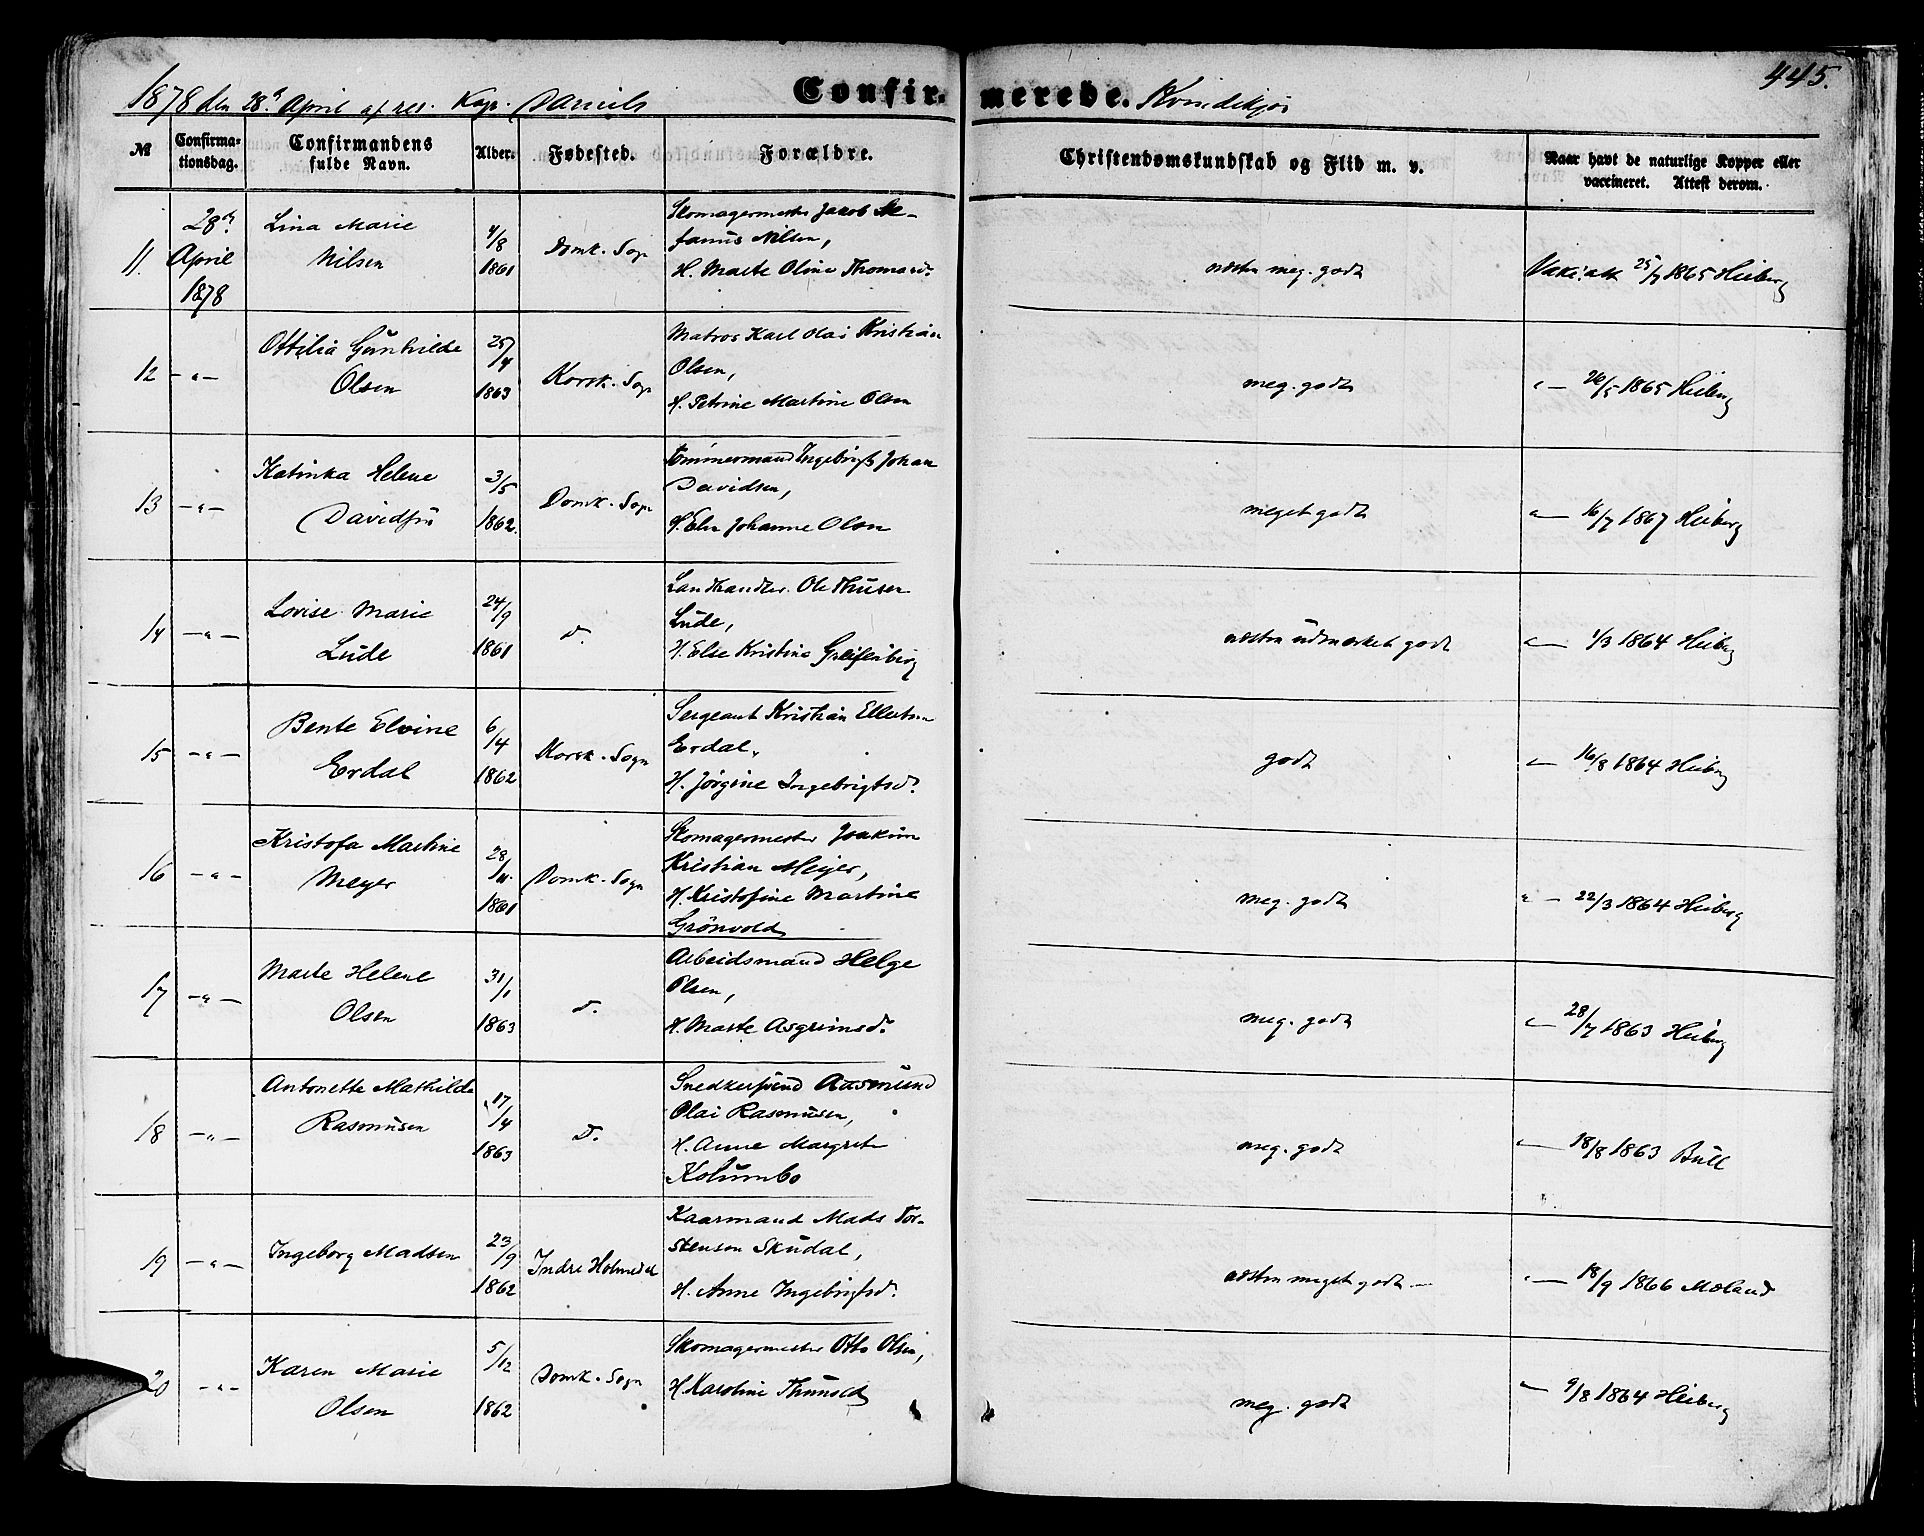 1878 den 28d April af res. Kap. Daniels Confirmerede. Kvindekjøn 445.
No Confirmationsdag. Confirmandens fulde Navn. Alder. Fødested. Forældre. Christendomskundskab og Flid m. v. Naar havt de naturlige Kopper eller vaccineret. Attest derom.
11. 28d April 1878 Lina Marie Nilsen 4/8 1861 Domk. Sogn
Skomagermester Jakob Stefanus Nilsen,
H. Marte Oline Thomasd.
næsten meg. godt Vaxi: att 25/7 1865 Heiberg
12 -"- Ottilia Gunhilde Olsen 25/4 1863 Korsk. Sogn
Matros Karl Olai Kristian
Olsen,
H. Petrine Martine Olsen
meg. godt " — 26/5 1865 Heiberg
13 -"- Katinka Helene Davidsen 3/5 1862. Domk. Sogn
Tømmermand Ingebrigt Johan
Davidsen,
H. Elen Johanne Olsen
meget godt " — 16/7 1867 Heiberg
14 -"- Lovise Marie Lude 24/9 1861 d.
Landhandler Ole Thusen
Lude,
H. Else Kristine Greifenberg
næsten udmærket godt " — 1/3 1864 Heiberg
15 -"- Bente Elvine Erdal 6/4 1862 Korsk. Sogn
Sergeant Kristian Ellertsen
Erdal,
H. Jørgine Ingebrigtsd.
godt " — 16/8 1864 Heiberg
16 -"- Kristofa Martine Meyer 28/11. 1861 Domk. Sogn
Skomagermester Joakim
Kristian Meijer,
H. Kristofine Martine
Grönvold
meg. godt " — 22/3 1864 Heiberg
17 -"- Marte Helene Olsen 31/1 1863 d.
Arbeidsmand Helge
Olsen,
H. Marte Asgrimsd.
meg. godt " — 28/7 1863 Heiberg
18 -"- Antonette Mathilde Rasmusen 17/4 1863 d.
Snedkersvend Rasmund
Olai Rasmusen,
H. Anne Margrete
Kolumbo
meg. godt " — 18/8 1863 Bull
19 -"- Ingeborg Madsen 23/9 1862 Indre Holmedal
Kaarmand Mads Torstensen Skudal,
H. Anne Ingebrigtsd.
næsten meget godt — " — 18/9 1866 Moland
20 -"- Karen Marie Olsen 5/12 1862 Domk. Sogn
Skomagermester Otto Olsen,
H. Karoline
meg. godt " — 9/8 1864 Heiberg